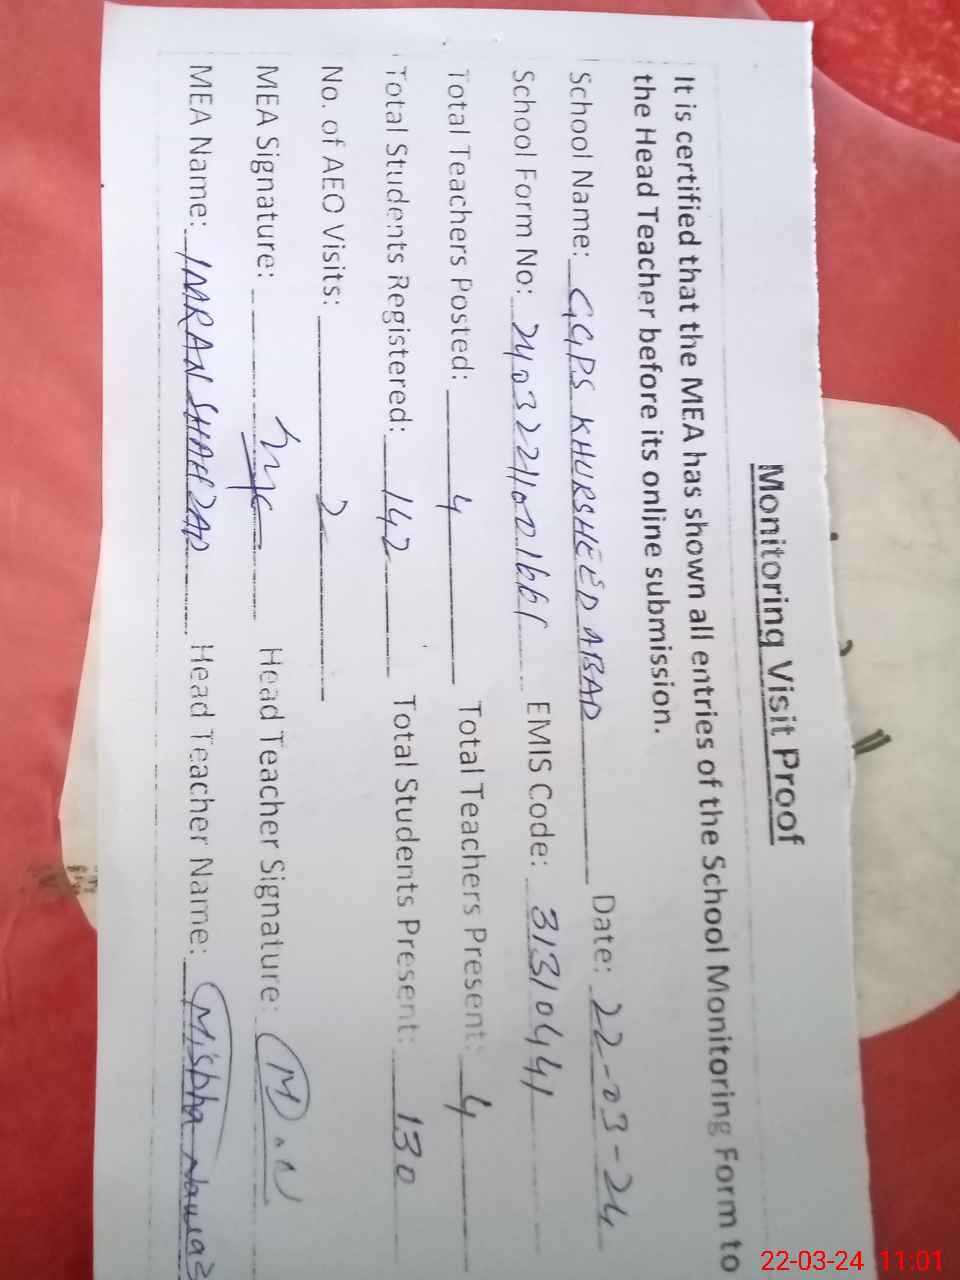 Monitoring Visit Proof
It is certified that the MEA has shown all entries of the School Monitoring Form to
the Head Teacher before its online submission.
School Name: GGPS KHURSHEED ABAD Date: 22-03-24
School Form No: EMIS Code: 31310441
Total Teachers Posted: 4 Total Teachers Present: 4
Total Students Registered: 142 Total Students Present: 130
No. of AEO Visits: 2
MEA Signature: Head Teacher Signature: M.N
MEA Name: IMRAN SHAHZAD Head Teacher Name: Misbha
22-03-24 11:01